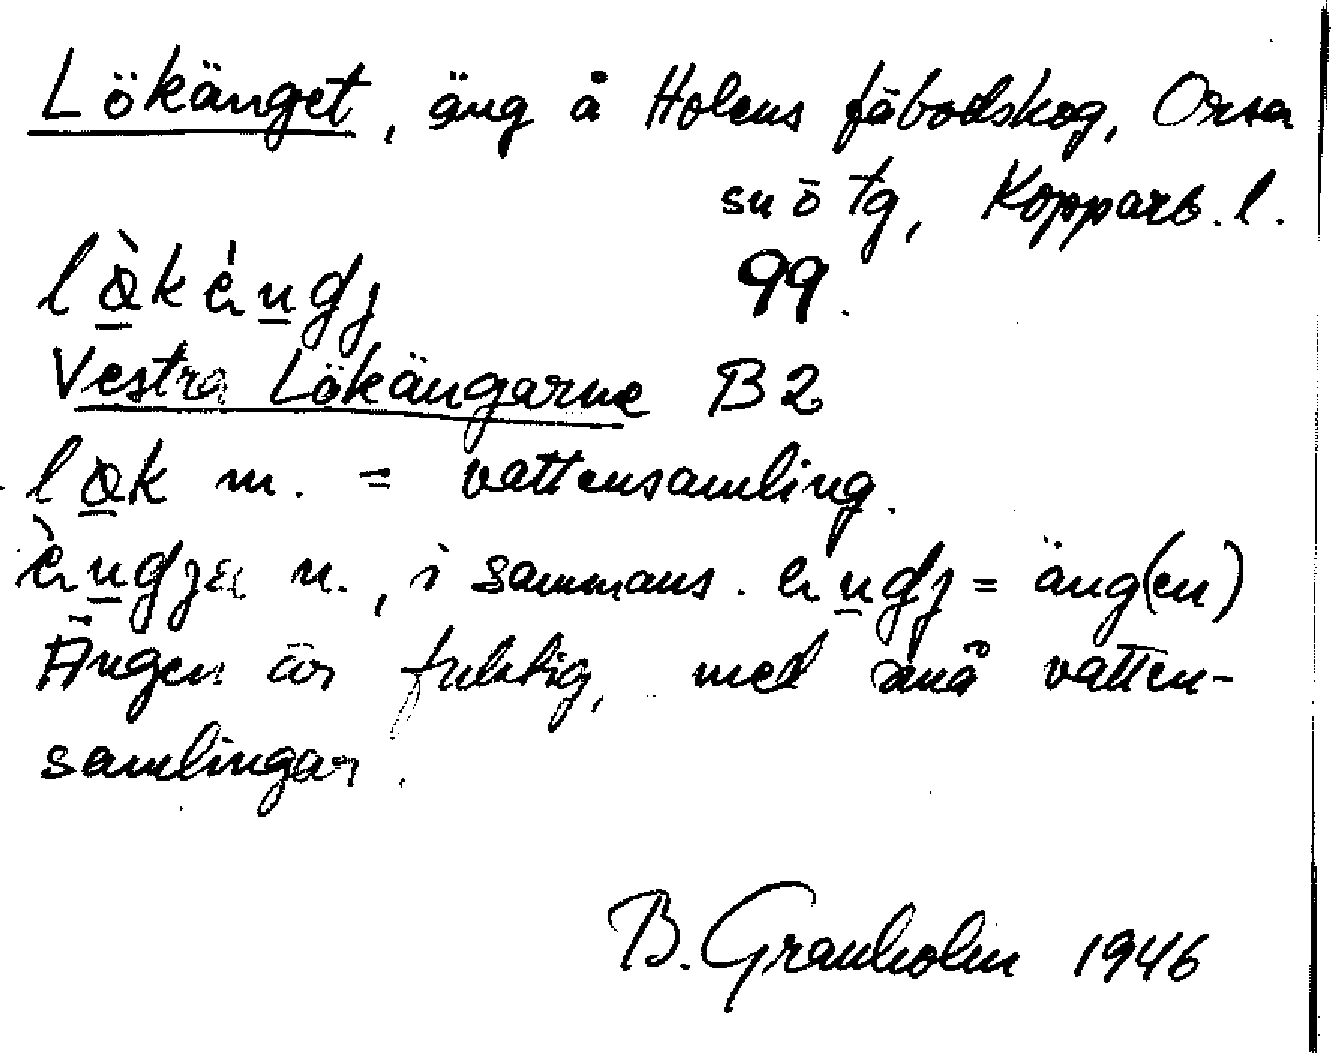 Lökänget, äng å Holens fäbodskog, Orsa
sn ö tg, Kopparb. l.
99.
Vestra Lökängarne B2
m. = vattensamling.
n., i sammans. = äng(en)
Ängen är fuktig, med små vatten-
samlingar.
B. Granholm 1946